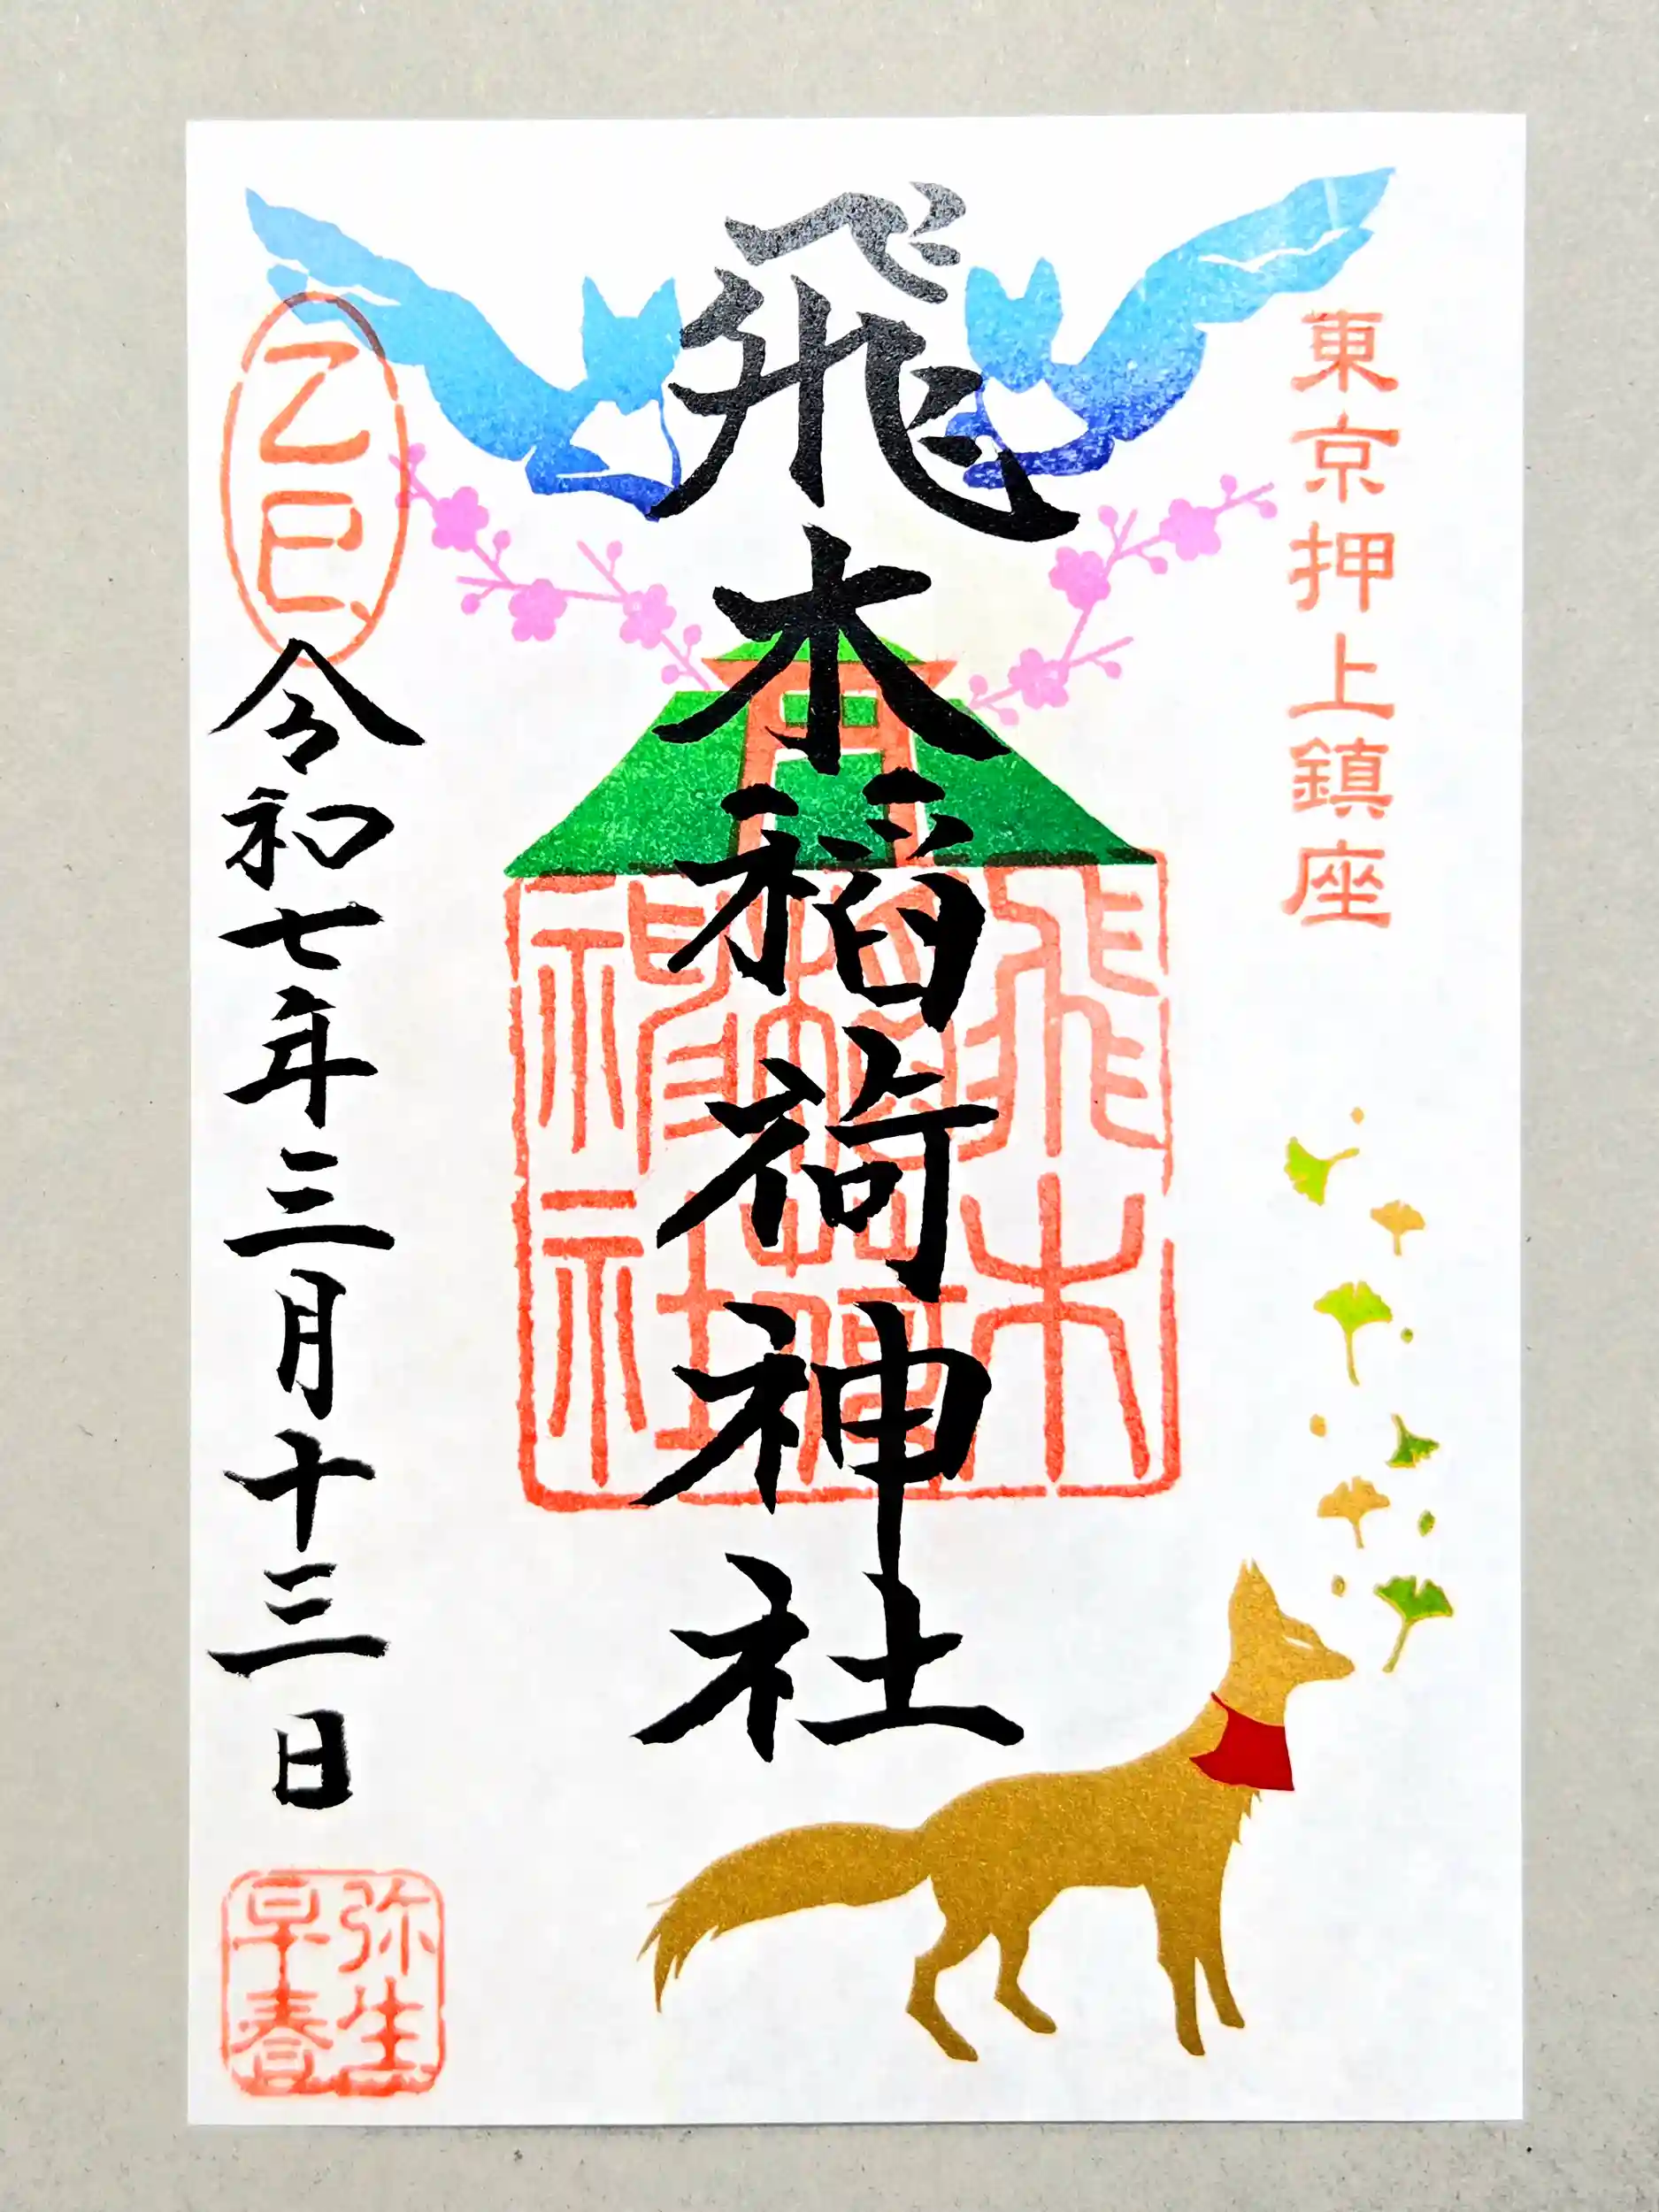 東京押上鎮座
飛木稲荷神社
飛木
稲荷
神社
乙巳
令和七年三月十三日
弥生
早春